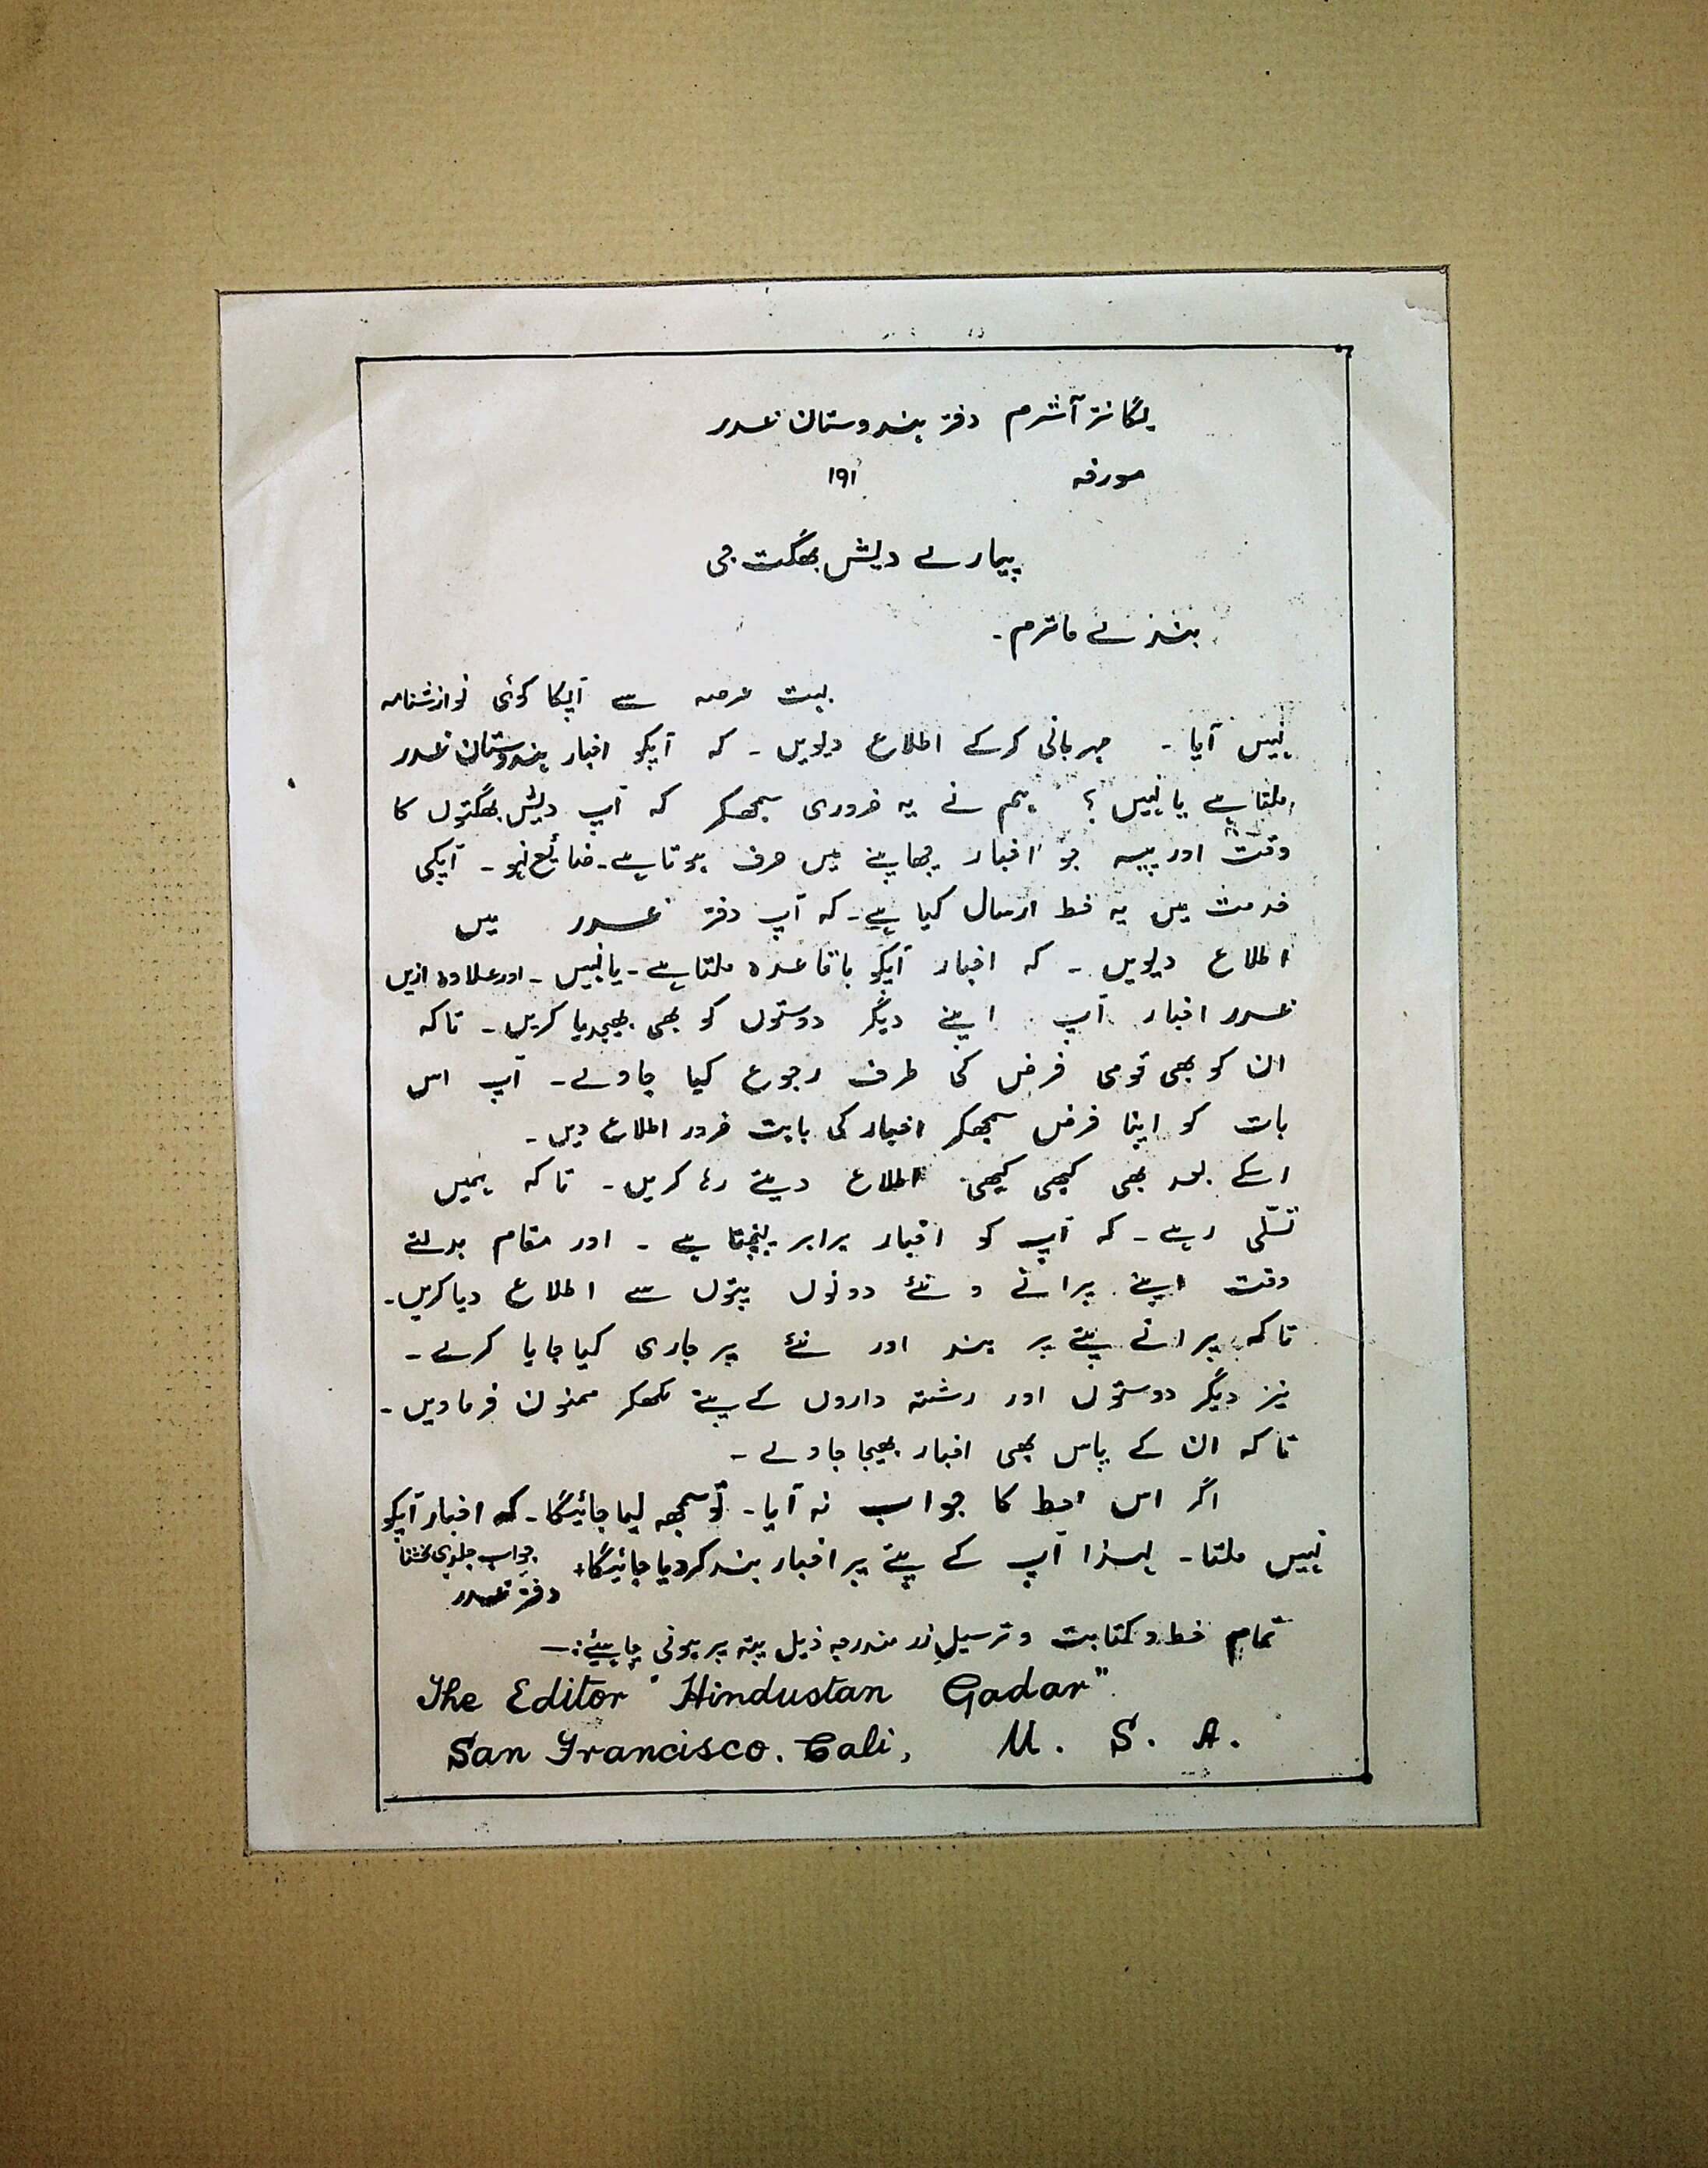 یگانتر آشرم دفتر ہندوستان غدر
مورخہ ۱۹۱
پیارے دیش بھگت جی
بندے ماترم۔
بہت عرصہ سے آپکا کوئی نوازشنامہ
نہیں آیا ۔ مہربانی کرکے اطلاع دیویں ۔ کہ آپکو اخبار ہندوستان غدر
ملتا ہے یا نہیں ؟ ہم نے یہ ضروری سمجھکر کہ آپ دیش بھگتوں کا
وقت اور پیسہ جو اخبار چھاپنے میں صرف ہوتا ہے۔ ضائع نہو ۔ آپکی
خدمت میں یہ خط ارسال کیا ہے۔ کہ آپ دفتر غدر میں
اطلاع دیویں ۔ کہ اخبار آپکو باقاعدہ ملتا ہے۔ یا نہیں ۔ اور علاوہ ازیں
غدر اخبار آپ اپنے دیگر دوستوں کو بھی بھیجدیا کریں ۔ تا کہ
ان کو بھی قومی فرض کی طرف رجوع کیا جاوے۔ آپ اس
بات کو اپنا فرض سمجھکر اخبار کی بابت ضرور اطلاع دیں ۔
اسکے بعد بھی کبھی کبھی اطلاع دیتے رہا کریں ۔ تا کہ ہمیں
تسلّی رہے ۔ کہ آپ کو اخبار برابر پہنچتا ہے ۔ اور مقام بدلتے
وقت اپنے پرانے و نئے دونوں پتوں سے اطلاع دیا کریں۔
تا کہ پرانے پتے پر بند اور نئے پر جاری کیا جایا کرے ۔
نیز دیگر دوستوں اور رشتہ داروں کے پتے لکھکر ممنون فرماویں ۔
تا کہ ان کے پاس بھی اخبار بھیجا جاوے ۔
اگر اس خط کا جواب نہ آیا ۔ تو سمجھ لیا جائیگا ۔ کہ اخبار آپکو
نہیں ملتا ۔ لہذا آپ کے پتے پر اخبار بند کر دیا جائیگا + جواب جلدی
دفتر غدر
تمام خط و کتابت و ترسیلِ زر مندرجہ ذیل پتہ پر ہونی چاہیئے :—
The Editor "Hindustan Gadar"
San Francisco. Cali, U. S. A.